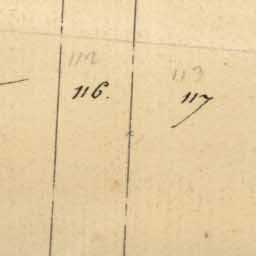 112 113
116. 117